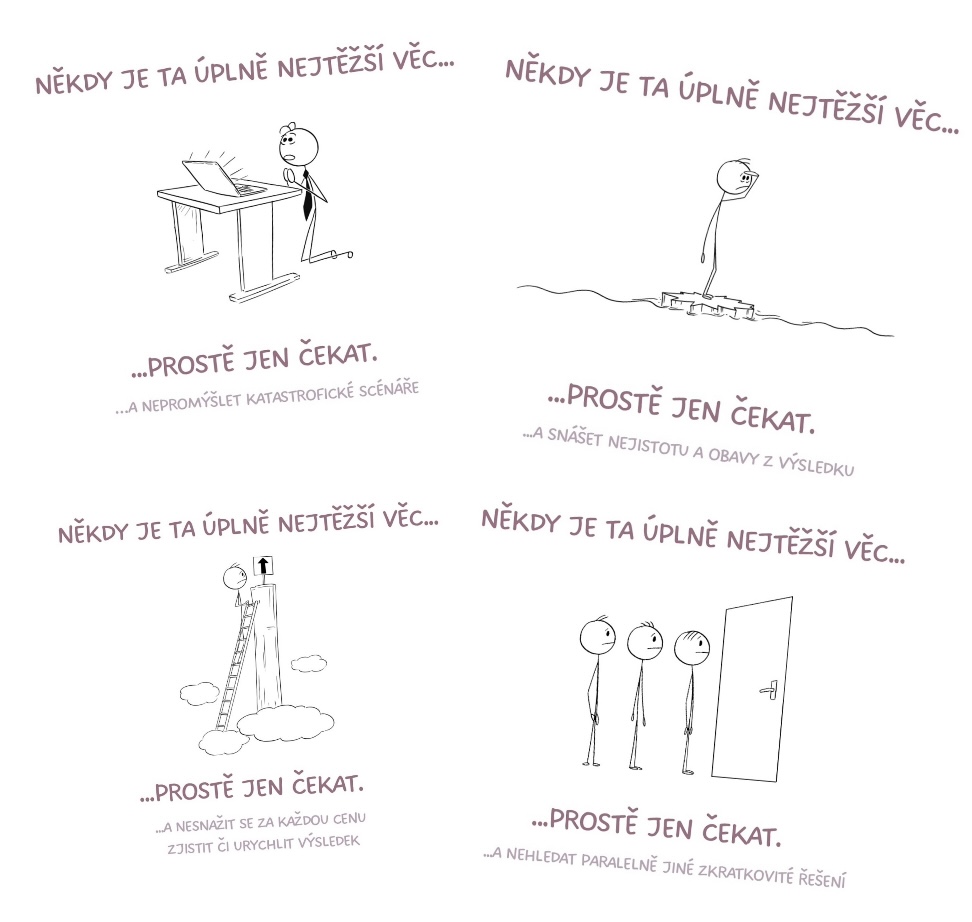 NĚKDY JE TA ÚPLNĚ NEJTĚŽŠÍ VĚC...
...PROSTĚ JEN ČEKAT.
...A NEPROMÝŠLET KATASTROFICKÉ SCÉNÁŘE
NĚKDY JE TA ÚPLNĚ NEJTĚŽŠÍ VĚC...
...PROSTĚ JEN ČEKAT.
...A SNÁŠET NEJISTOTU A OBAVY Z VÝSLEDKU
NĚKDY JE TA ÚPLNĚ NEJTĚŽŠÍ VĚC...
...PROSTĚ JEN ČEKAT.
...A NESNAŽIT SE ZA KAŽDOU CENU
ZJISTIT ČI URYCHLIT VÝSLEDEK
NĚKDY JE TA ÚPLNĚ NEJTĚŽŠÍ VĚC...
...PROSTĚ JEN ČEKAT.
...A NEHLEDAT PARALELNĚ JINÉ ZKRATKOVITÉ ŘEŠENÍ